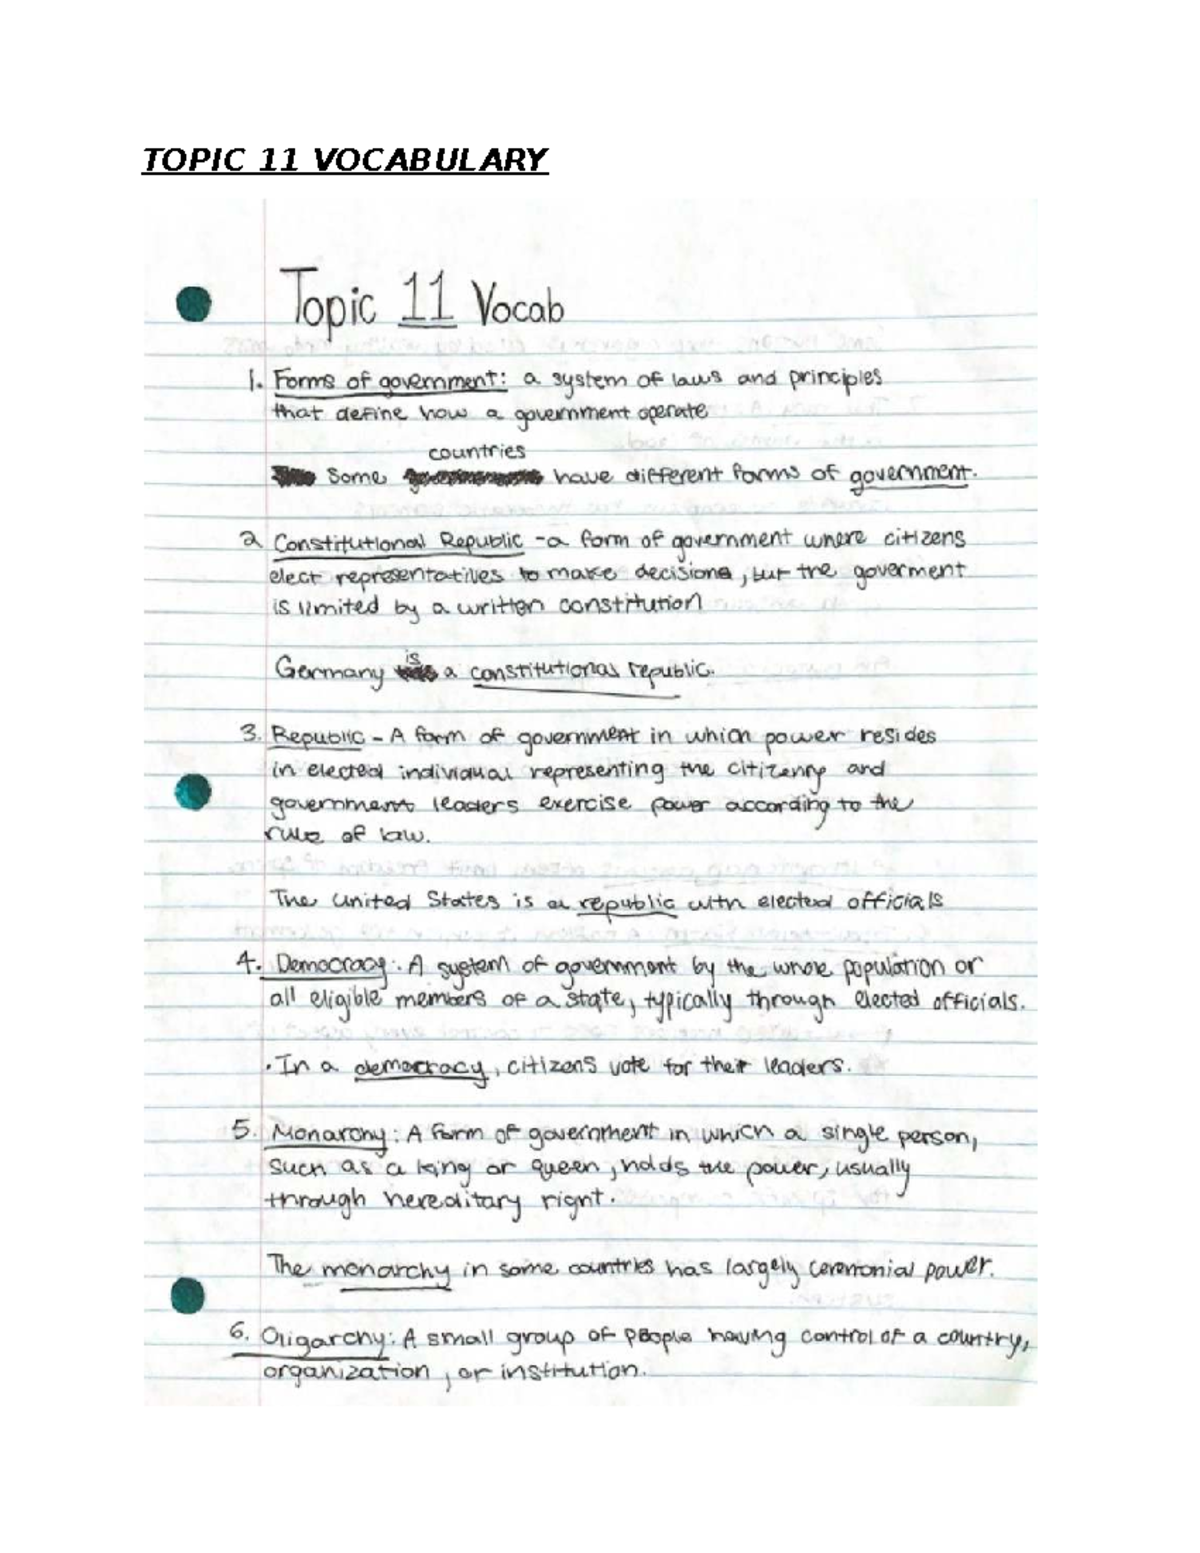 TOPIC 11 VOCABULARY
Topic 11 Vocab
1. Forms of government: a system of laws and principles
that define how a government operate
countries
Some have different forms of government.
2 Constitutional Republic - a form of government where citizens
elect representatives to make decisions, but the goverment
is limited by a written constitution
is
Germany a constitutional republic.
3. Republic - A form of government in which power resides
in elected individual representing the citizenry and
government leaders exercise power according to the
rule of law.
The United States is a republic with elected officials
4. Democracy: A system of government by the whole population or
all eligible members of a state, typically through elected officials.
· In a democracy, citizens vote for their leaders.
5. Monarchy: A form of government in which a single person,
such as a king or queen, holds the power, usually
through hereditary right.
The monarchy in some countries has largely ceremonial power.
6. Oligarchy: A small group of people having control of a country,
organization, or institution.